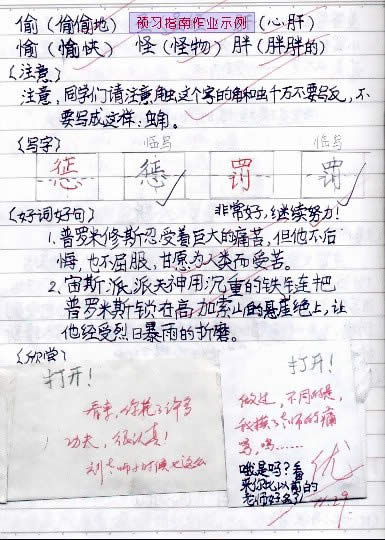 偷（偷偷地） 预习指南作业示例 （心肝）
愉（愉快） 怪（怪物）胖（胖胖的）
〈注意〉
注意，同学们请注意,触这个字的角和虫千万不要写反，不
要写成这样：虫角。
〈写字〉 临写 临写
惩 惩 罚 罚
〈好词好句〉 非常好，继续努力！
1.普罗米修斯忍受着巨大的痛苦，但他不后
悔，也不屈服，甘愿为人类而受苦。
2.宙斯派派火神用沉重的铁链把
普罗米斯锁在高加索山的悬崖绝上，让
他经受烈日暴雨的折磨。
打开！
打开！
看来，你花了许多
功夫，很认真！
刘老师小时候也这么
做过，不同的是，
我挨了老师的痛
骂，呜……
哦是吗？看
来你比以前的
老师好多了！
优
11.29.